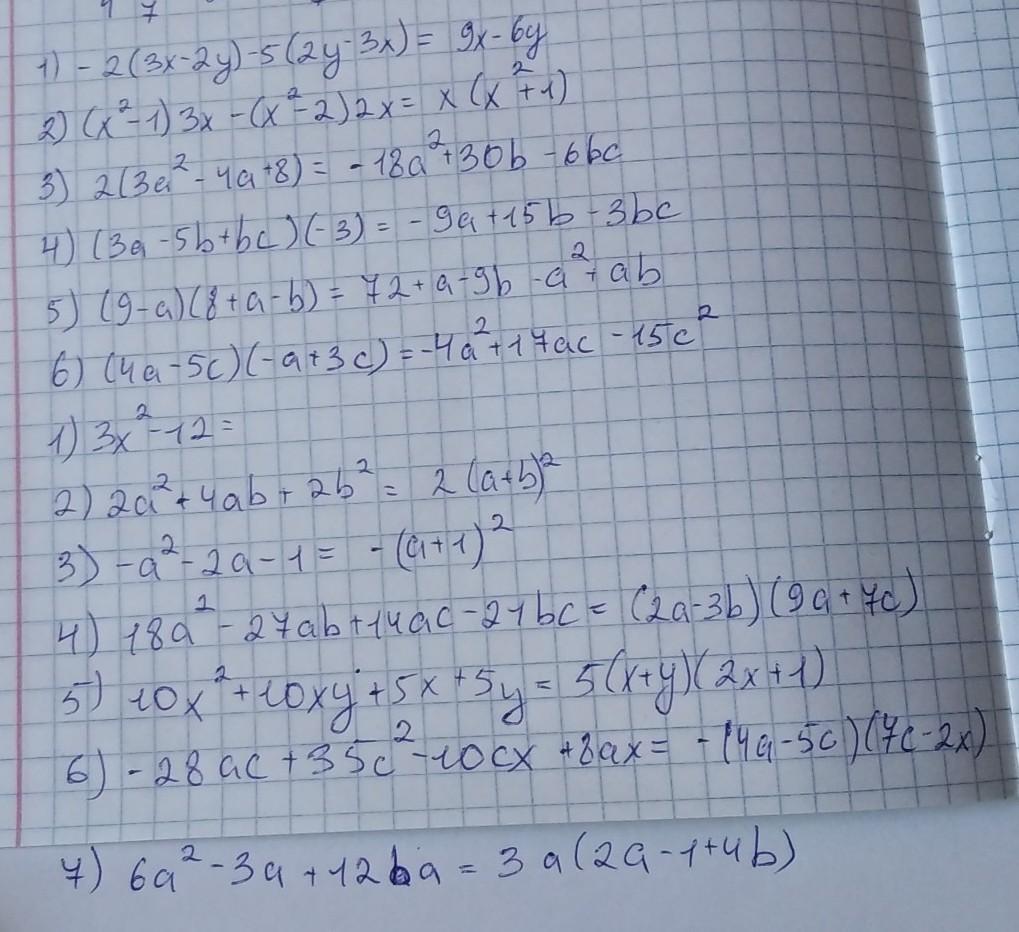 1) -2(3x-2y)-5(2y-3x)= 9x-6y
2) (x²-1)3x-(x²-2)2x= x(x²+1)
3) 2(3a²-4a+8)= -18a²+30b-6bc
4) (3a-5b+bc)(-3)= -9a+15b-3bc
5) (9-a)(8+a-b)= 72+a-9b-a²+ab
6) (4a-5c)(-a+3c)=-4a²+17ac-15c²
1) 3x²-12=
2) 2a²+4ab+2b²= 2(a+b)²
3) -a²-2a-1= -(a+1)²
4) 18a²-27ab+14ac-21bc=(2a-3b)(9a+7c)
5) 10x²+10xy+5x+5y=5(x+y)(2x+1)
6) -28ac+35c²-10cx+8ax= -(4a-5c)(7c-2x)
7) 6a²-3a+12ba=3a(2a-1+4b)